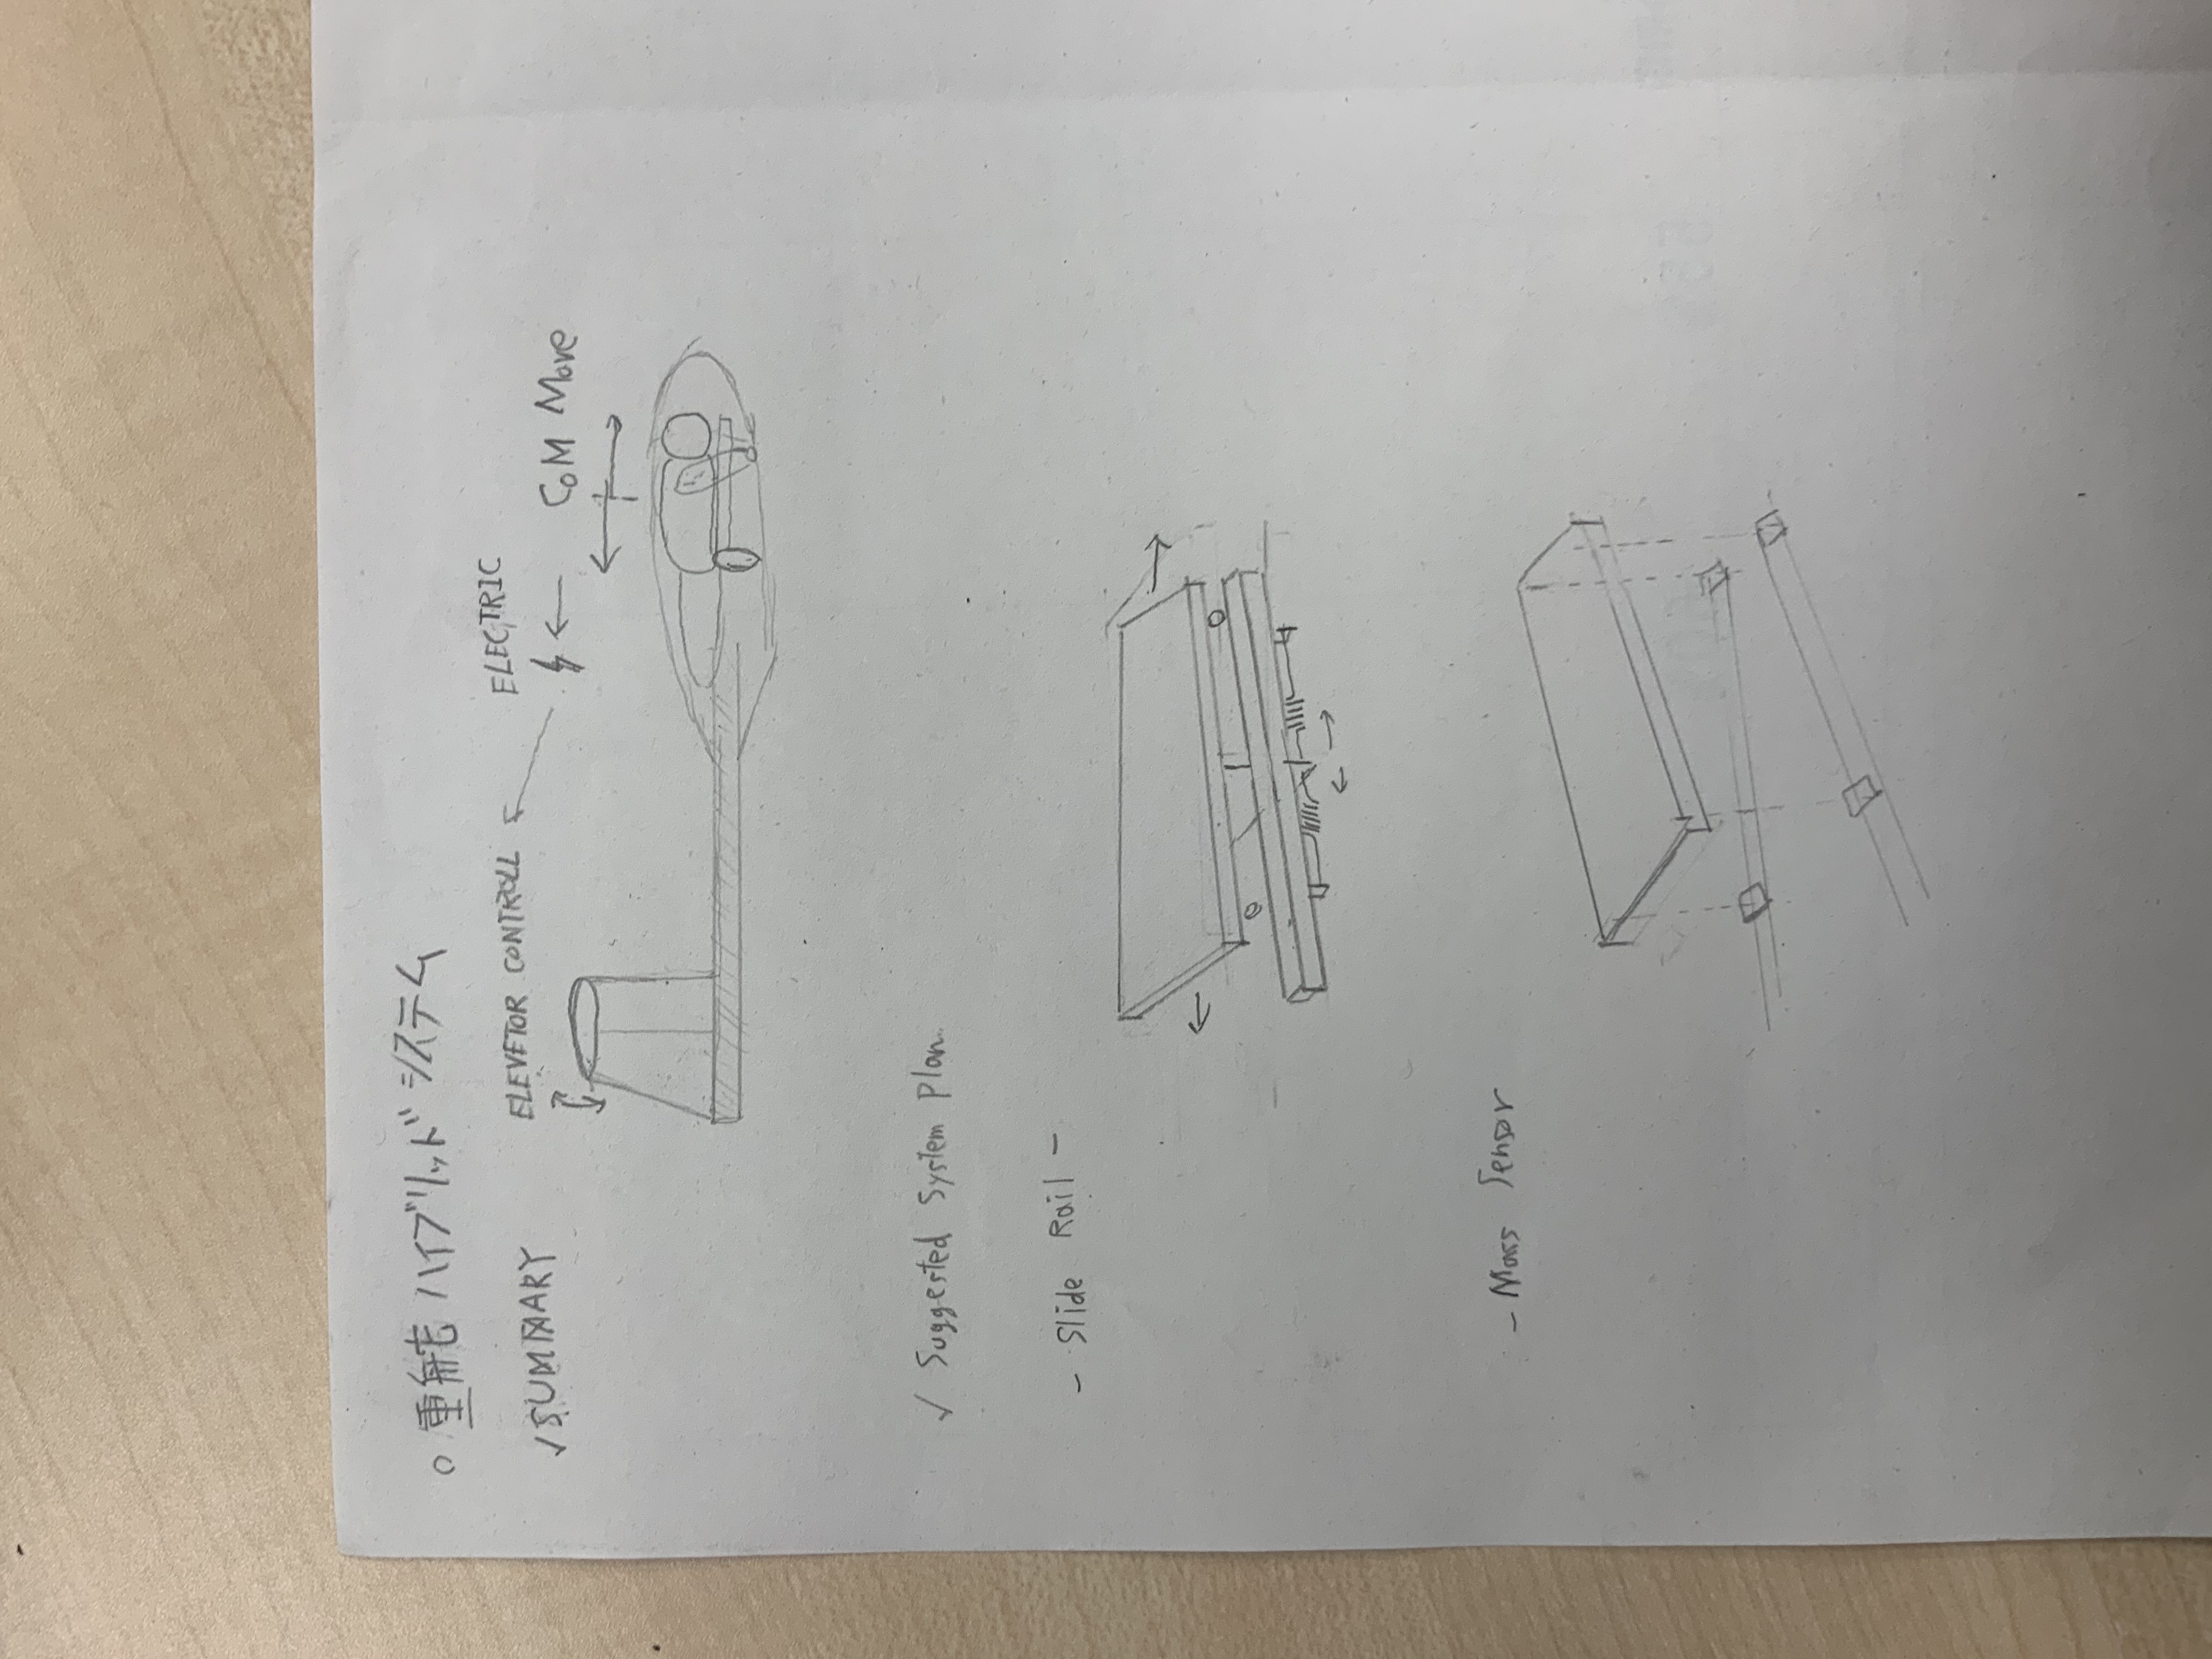 ○ 重舵 ハイブリッドシステム
✓SUMMARY
ELEVETOR CONTROLL
ELECTRIC
CoM Move
✓ Suggested System Plan.
- Slide Rail -
- Mass Sensor